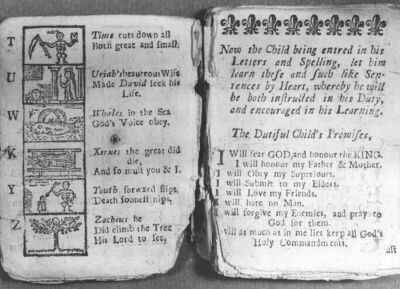 T
Time cuts down all
Both great and small.
U
Uriah's beauteous Wife
Made David seek his
Life.
W
Whales in the Sea
God's Voice obey.
K
Xerxes the great did
die,
And so must you & I.
Y
Youth forward slips
Death soonest nips.
Z
Zacheus he
Did climb the Tree
His Lord to see,
Now the Child being entred in his
Letters and Spelling, let him
learn these and such like Sen-
tences by Heart, whereby he will
be both instructed in his Duty,
and encouraged in his Learning.
The Dutiful Child's Promises,
I Will fear GOD, and honour the KING.
I will honour my Father & Mother.
I will Obey my Superiours.
I will Submit to my Elders.
I will Love my Friends.
I will hate no Man.
I will forgive my Enemies, and pray to
God for them.
I will as much as in me lies keep all God's
Holy Commandments.